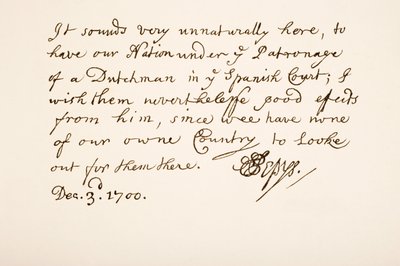 It sounds very unnaturally here, to
have our Nation under yᵉ Patronage
of a Dutchman in yᵉ Spanish Court; I
wish them neverthelesse good efects
from him, since wee have none
of our owne Country to Looke
out for them there. SPepys.
Dec. 3ᵈ. 1700.